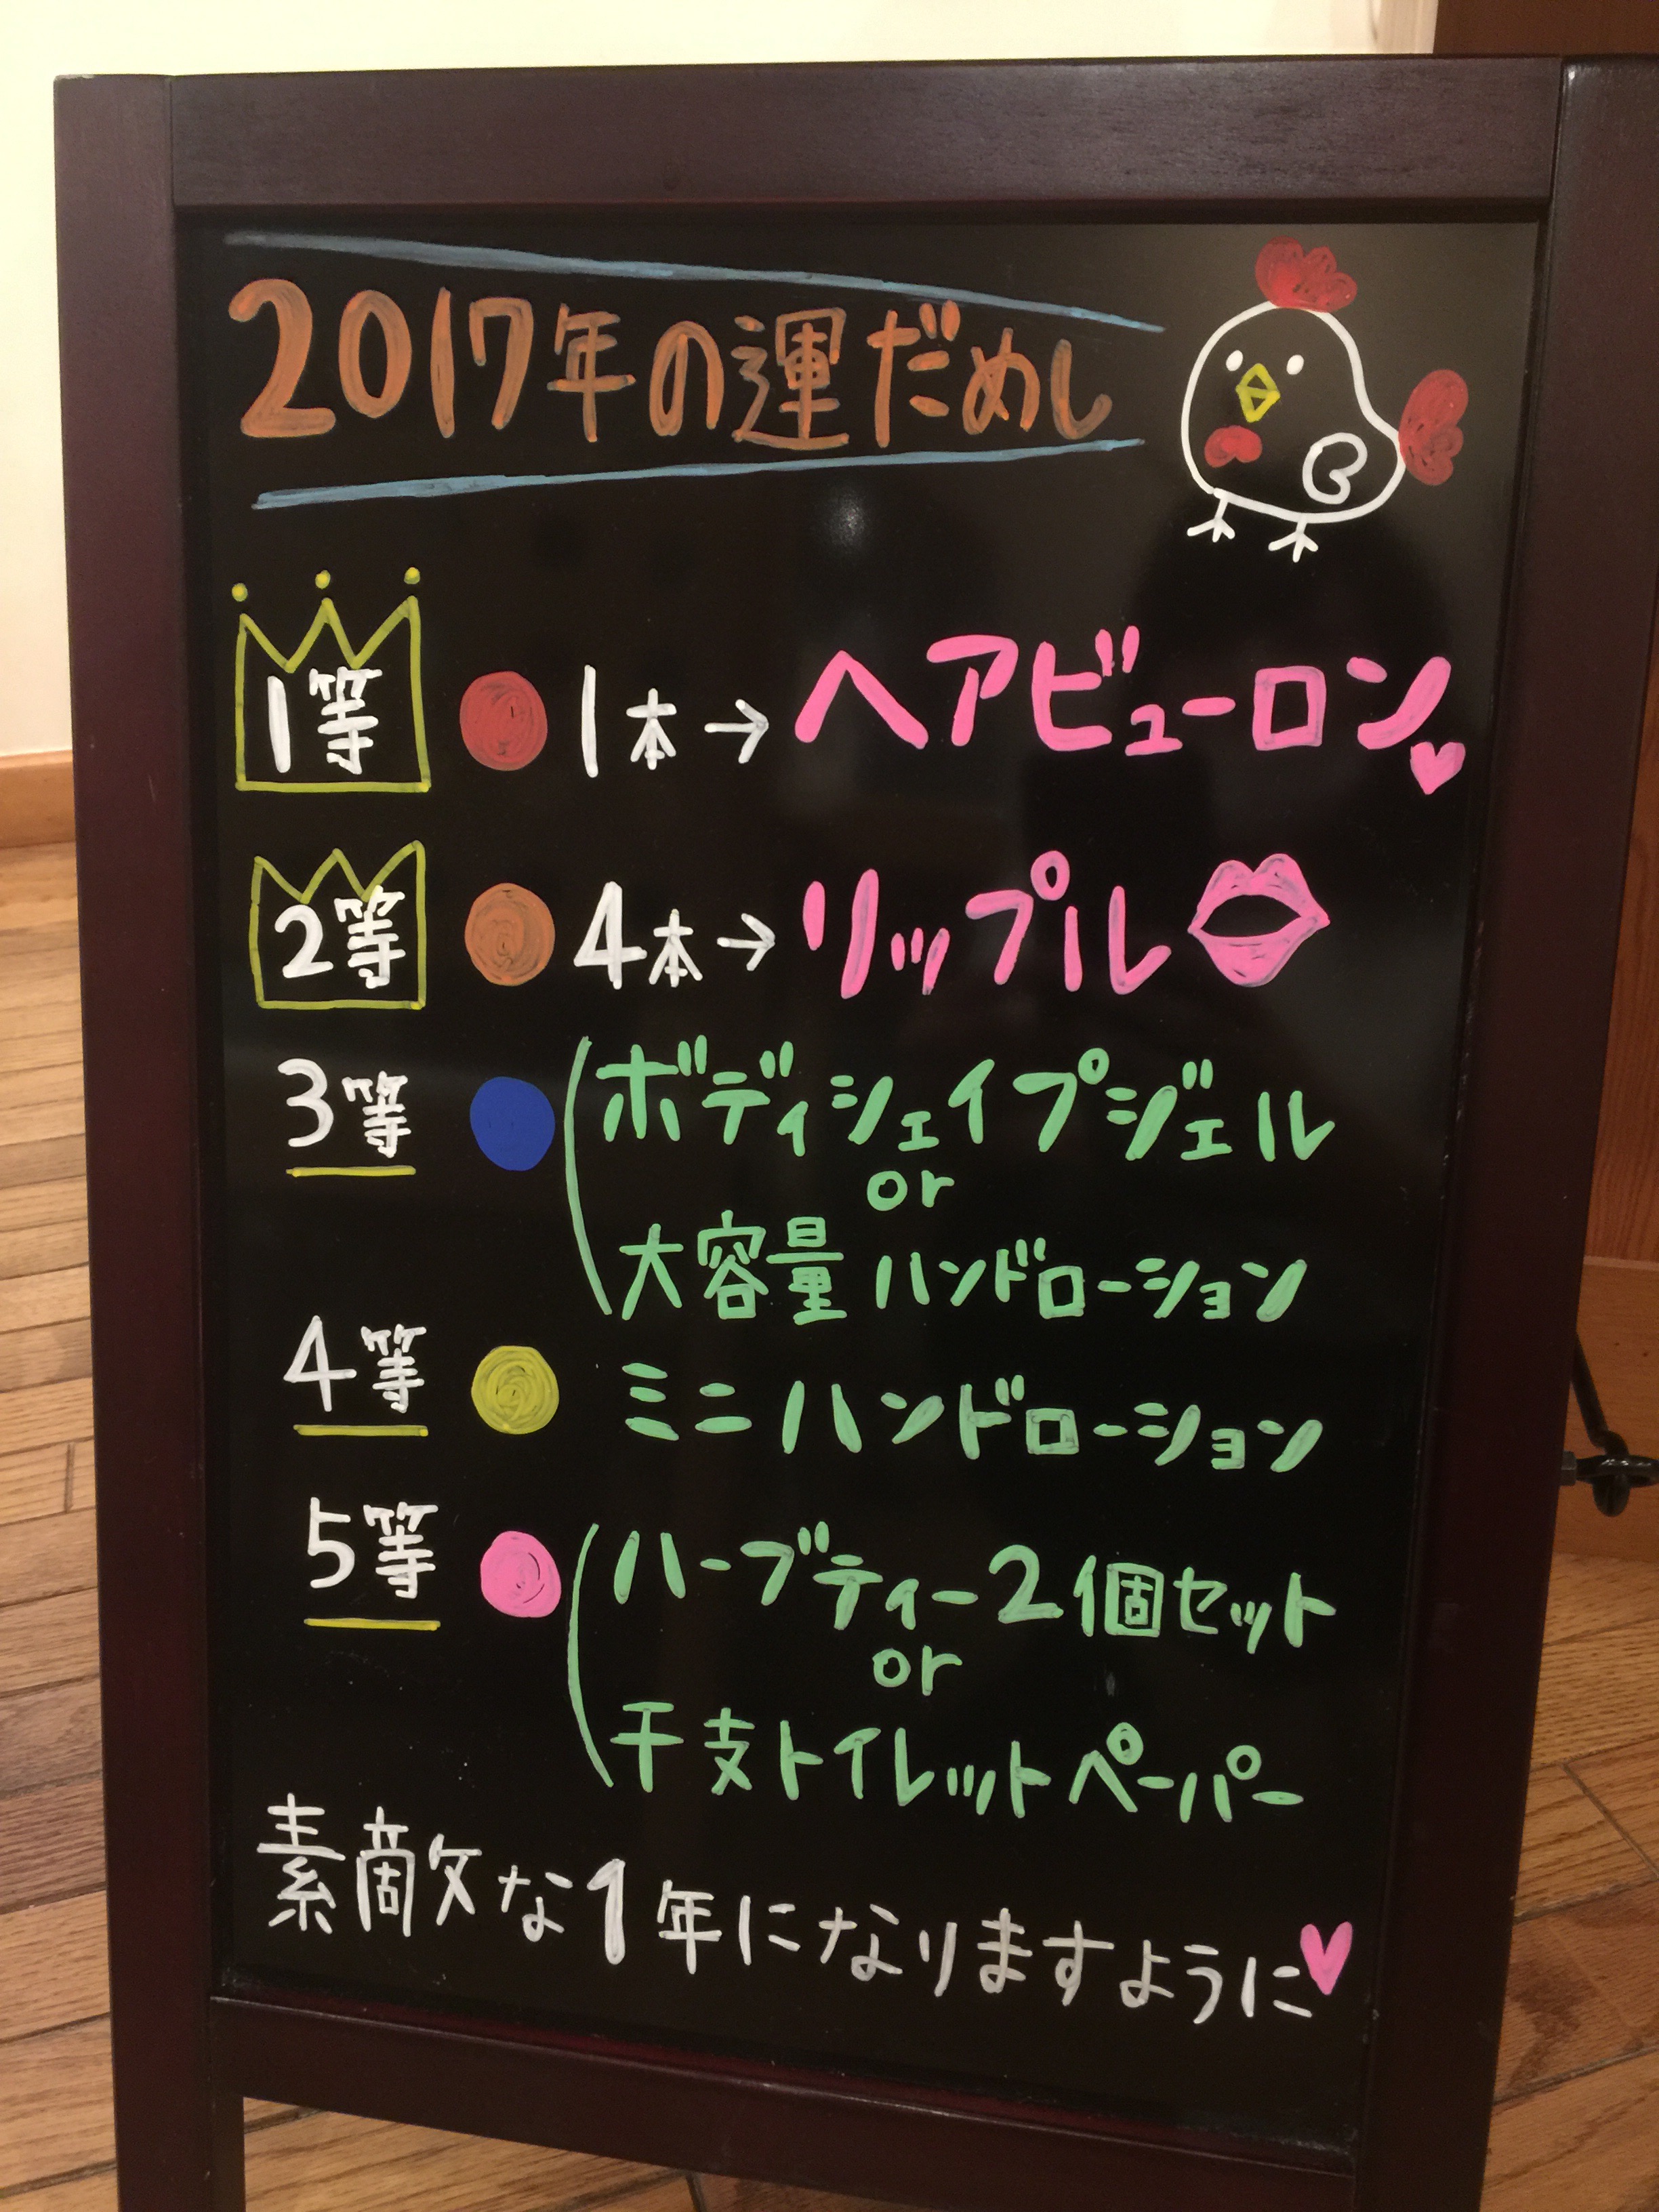 2017年の運だめし
1等 1本→ヘアビューロン
2等 4本→リップル
3等 ボディシェイプジェル
or
大容量ハンドローション
4等 ミニハンドローション
5等 ハーブティー2個セット
or
干支トイレットペーパー
素敵な1年になりますように